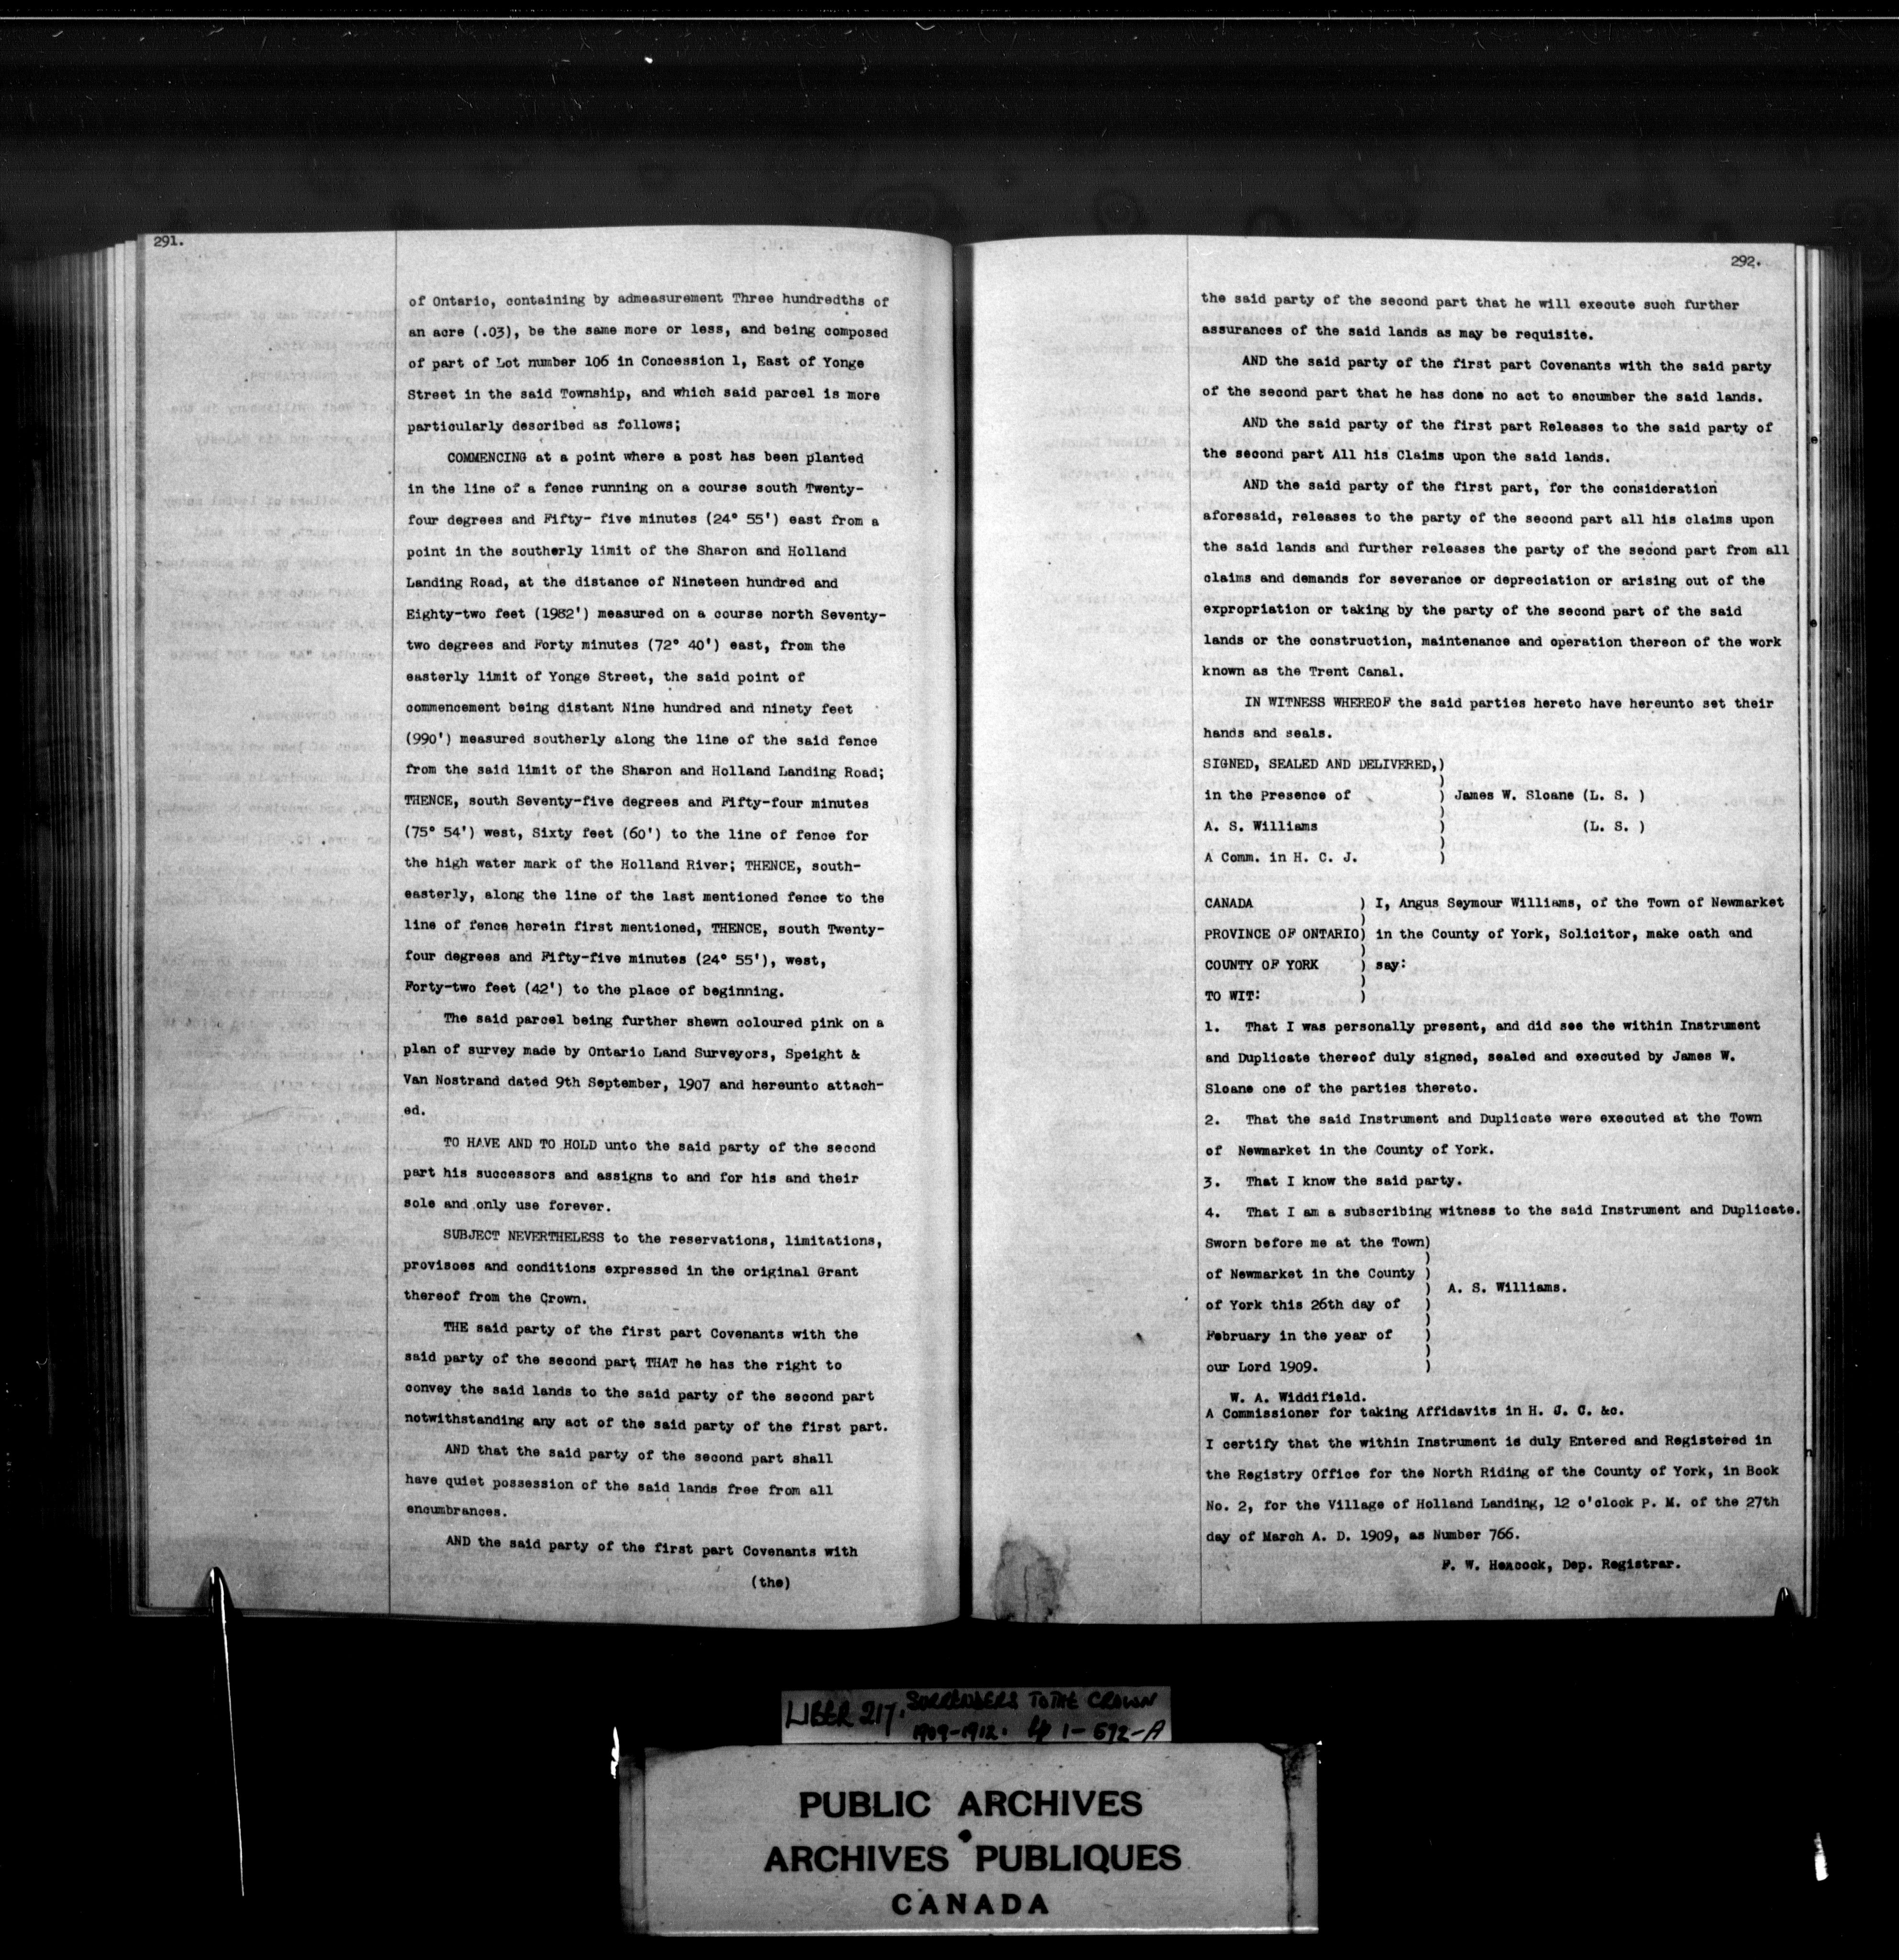 291.
of Ontario, containing by admeasurement Three hundredths of
an acre (.03), be the same more or less, and being composed
of part of Lot number 106 in Concession 1, East of Yonge
Street in the said Township, and which said parcel is more
particularly described as follows;
COMMENCING at a point where a post has been planted
in the line of a fence running on a course south Twenty-
four degrees and Fifty- five minutes (24° 55') east from a
point in the southerly limit of the Sharon and Holland
Landing Road, at the distance of Nineteen hundred and
Eighty-two feet (1982') measured on a course north Seventy-
two degrees and Forty minutes (72° 40') east, from the
easterly limit of Yonge Street, the said point of
commencement being distant Nine hundred and ninety feet
(990') measured southerly along the line of the said fence
from the said limit of the Sharon and Holland Landing Road;
THENCE, south Seventy-five degrees and Fifty-four minutes
(75° 54') west, Sixty feet (60') to the line of fence for
the high water mark of the Holland River; THENCE, south-
easterly, along the line of the last mentioned fence to the
line of fence herein first mentioned, THENCE, south Twenty-
four degrees and Fifty-five minutes (24° 55'), west,
Forty-two feet (42') to the place of beginning.
The said parcel being further shewn coloured pink on a
plan of survey made by Ontario Land Surveyors, Speight &
Van Nostrand dated 9th September, 1907 and hereunto attach-
ed.
TO HAVE AND TO HOLD unto the said party of the second
part his successors and assigns to and for his and their
sole and only use forever.
SUBJECT NEVERTHELESS to the reservations, limitations,
provisoes and conditions expressed in the original Grant
thereof from the Crown.
THE said party of the first part Covenants with the
said party of the second part THAT he has the right to
convey the said lands to the said party of the second part
notwithstanding any act of the said party of the first part.
AND that the said party of the second part shall
have quiet possession of the said lands free from all
encumbrances.
AND the said party of the first part Covenants with
(the)
292.
the said party of the second part that he will execute such further
assurances of the said lands as may be requisite.
AND the said party of the first part Covenants with the said party
of the second part that he has done no act to encumber the said lands.
AND the said party of the first part Releases to the said party of
the second part All his Claims upon the said lands.
AND the said party of the first part, for the consideration
aforesaid, releases to the party of the second part all his claims upon
the said lands and further releases the party of the second part from all
claims and demands for severance or depreciation or arising out of the
expropriation or taking by the party of the second part of the said
lands or the construction, maintenance and operation thereon of the work
known as the Trent Canal.
IN WITNESS WHEREOF the said parties hereto have hereunto set their
hands and seals.
SIGNED, SEALED AND DELIVERED,)
)
in the Presence of ) James W. Sloane (L. S. )
)
A. S. Williams ) (L. S. )
)
A Comm. in H. C. J. )
CANADA ) I, Angus Seymour Williams, of the Town of Newmarket
)
PROVINCE OF ONTARIO) in the County of York, Solicitor, make oath and
)
COUNTY OF YORK ) say:
)
TO WIT: )
1. That I was personally present, and did see the within Instrument
and Duplicate thereof duly signed, sealed and executed by James W.
Sloane one of the parties thereto.
2. That the said Instrument and Duplicate were executed at the Town
of Newmarket in the County of York.
3. That I know the said party.
4. That I am a subscribing witness to the said Instrument and Duplicate.
Sworn before me at the Town)
)
of Newmarket in the County )
) A. S. Williams.
of York this 26th day of )
)
February in the year of )
)
our Lord 1909. )
W. A. Widdifield.
A Commissioner for taking Affidavits in H. J. C. &c.
I certify that the within Instrument is duly Entered and Registered in
the Registry Office for the North Riding of the County of York, in Book
No. 2, for the Village of Holland Landing, 12 o'clock P. M. of the 27th
day of March A. D. 1909, as Number 766.
F. W. Heacock, Dep. Registrar.
LIBER 217. SURRENDERS TO THE CROWN
1909-1912. 1-572-A
PUBLIC ARCHIVES
ARCHIVES PUBLIQUES
CANADA